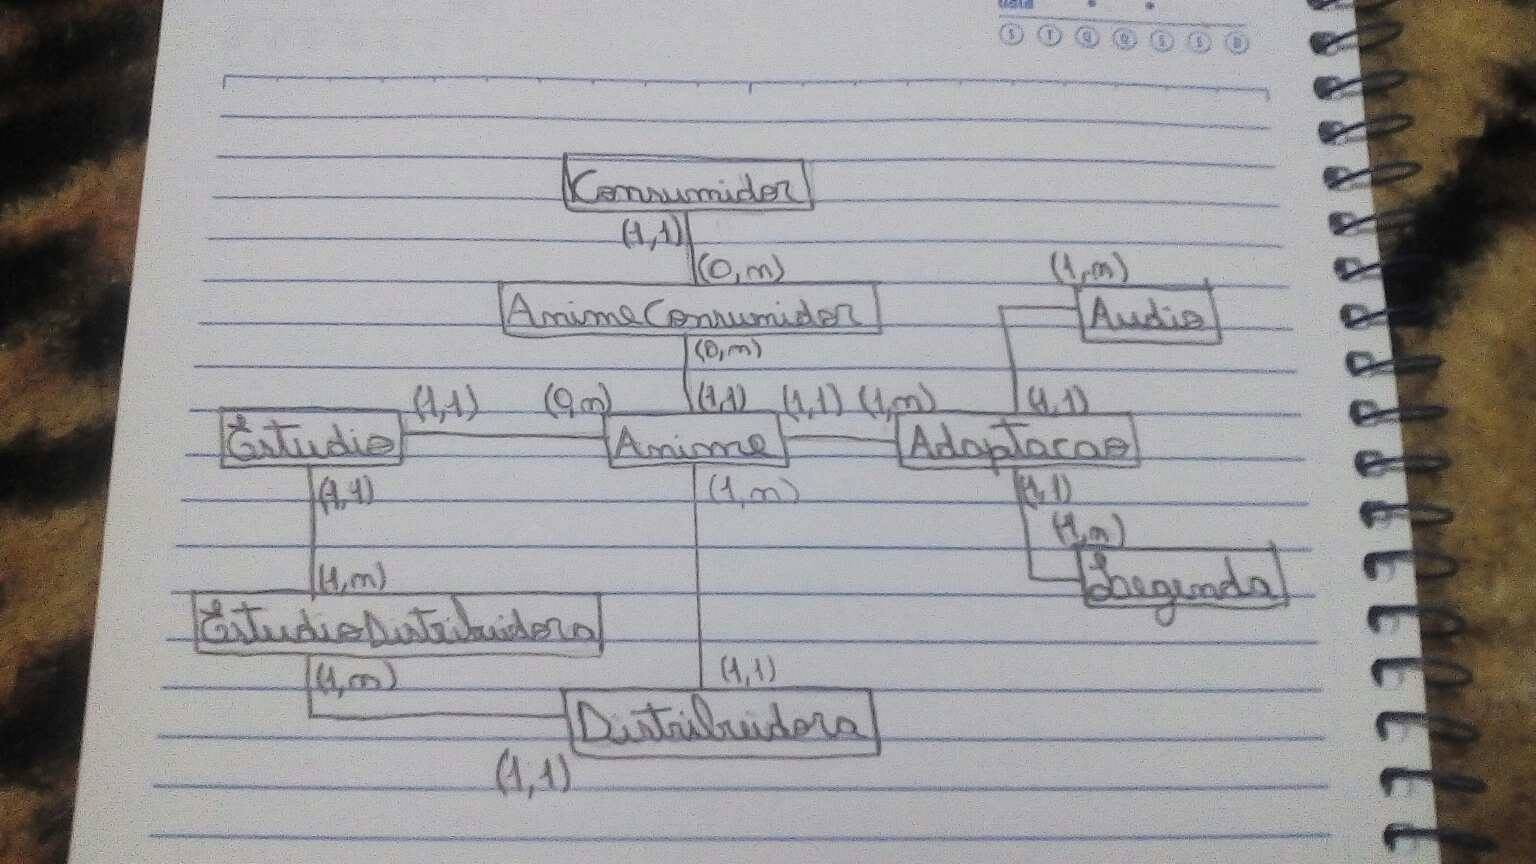 Data
S T Q Q S S D
Consumidor
(1,1)
(0,n)
(1,n)
AnimeConsumidor
Audio
(0,n)
(1,1) (0,n) (1,1) (1,1) (1,n) (1,1)
Estudio Anime Adaptacao
(1,1) (1,n) (1,1)
(1,n)
(1,n)
Legenda
EstudioDistribuidora
(1,n) (1,1)
Distribuidora
(1,1)